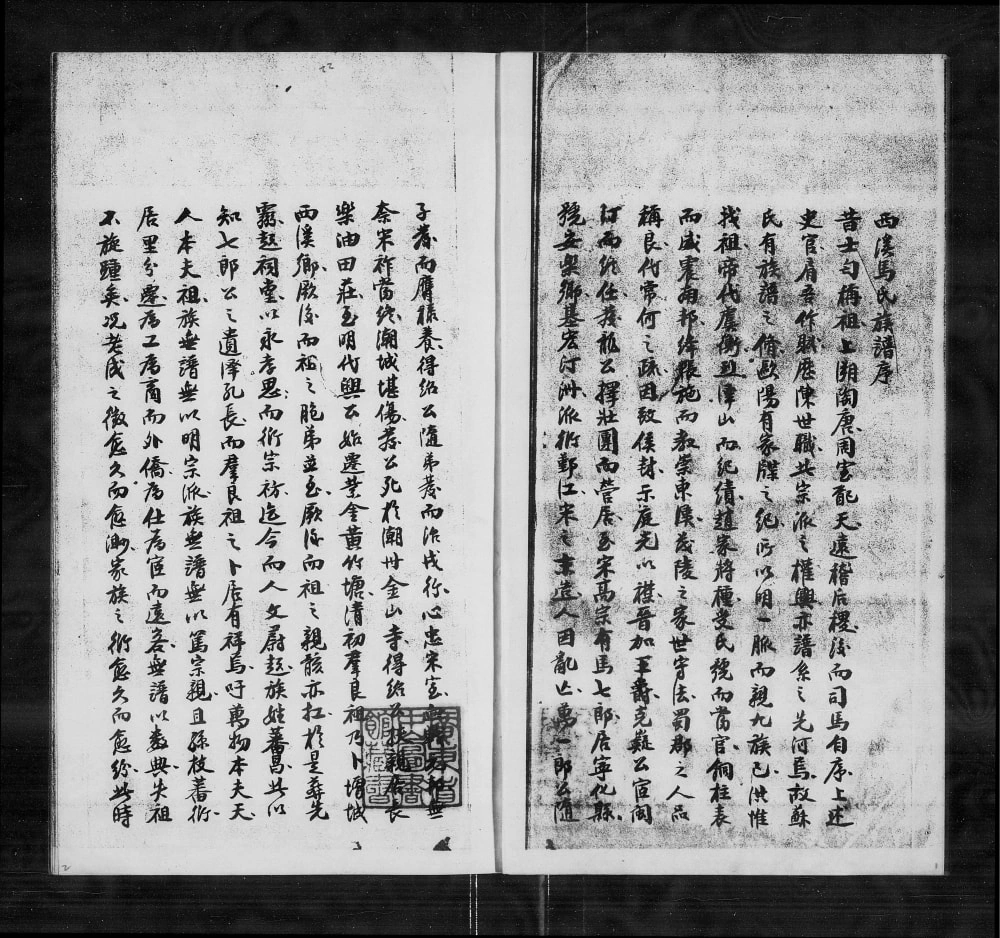 西溪馬氏族譜序
昔士匄稱祖上溯陶唐周室配天遠稽后稷後而司馬自序上述
史官肩吾作賦歷陳世職此宗派之權輿亦譜系之先河焉故蘇
氏有族譜之脩歐陽有家牒之紀所以明一脈而親九族已洪惟
我祖帝代虞衡 澤山而紀績趙家將種受氏號而當官銅柱表
而威震南邦絳帳施而教崇東漢茂陵之家世守法蜀郡之人品
稱良代常何之疏因致侯封示庭光以禩晉加王爵克疑公宦閩
汀而終任我龍公擇壯團而營居至宋髙宗有馬七郎居寧化縣
號安樂鄉基宏汀洲派衍鄞江宋之末造人因亂亡萬一郎公隨
子發而膺禄養得紹公隨弟發而治戎行心忠宋室 無
奈宋祚當終潮城堪傷發公死於潮州金山寺得紹公 親居長
樂油田莊至明代興公始遷業金黃竹塘清初羣良祖乃卜壻城
西溪鄉厥後而祖之胞弟並至厥後而祖之親骸亦扛於是葬先
靈起祠堂以永孝思而衍宗祊迄今而人文蔚起族姓蕃昌此以
知七郎公之遺澤孔長而羣良祖之卜居有祥焉吁萬物本夫天
人本夫祖族無譜無以明宗派族無譜無以篤宗親且孫枝蕃衍
居里分遷為工為商而外僑為仕為宦而遠客無譜以數典失祖
不旋踵矣况老成之徵愈久而愈渺家族之衍愈久而愈紛此時